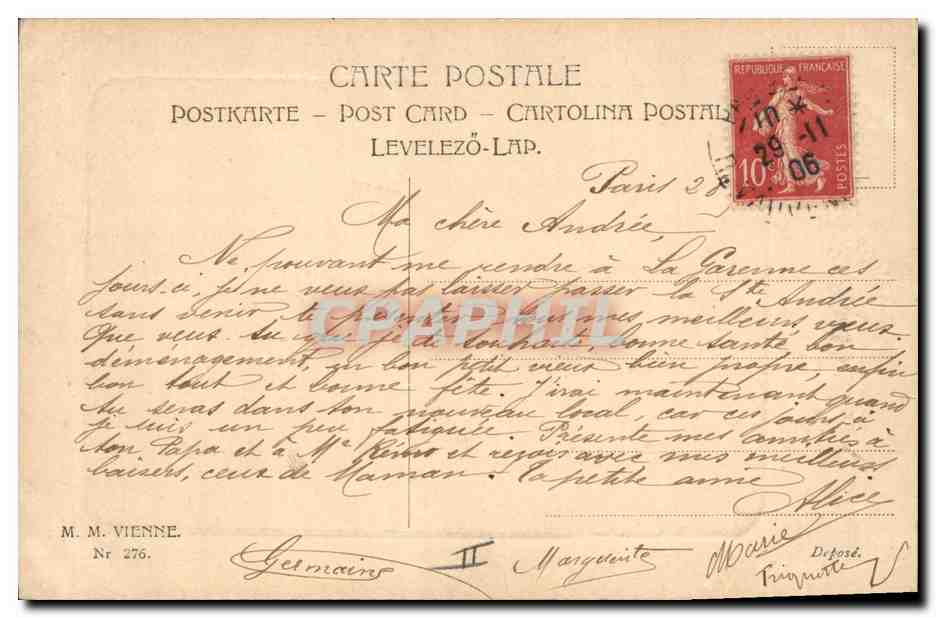 CARTE POSTALE
POSTKARTE – POST CARD – CARTOLINA POSTAL
LEVELEZŐ-LAP.
REPUBLIQUE FRANÇAISE
10 c
POSTES
29 -11
06
Paris 28
Ma chère Andrée,
Ne pouvant me rendre à La Garenne ces
jours-ci, je ne veux pas laisser passer la Ste Andrée
sans venir te présenter tous mes meilleurs vœux
Que veux tu que je te souhaite, bonne santé, bon
déménagement, un bon petit vieux bien propre, enfin
bon tout et bonne fête. J'irai maintenant quand
tu seras dans ton nouveau local car ces jours-ci
je suis un peu fatiguée. Présente mes amitiés à
ton Papa et à Me et reçois avec mes meilleurs
baisers, ceux de Maman. Ta petite amie
Alice
CPAPHIL
M. M. VIENNE.
Nr 276.
Germaine
II
Marguerite
Marie
Triquotte
Deposé.